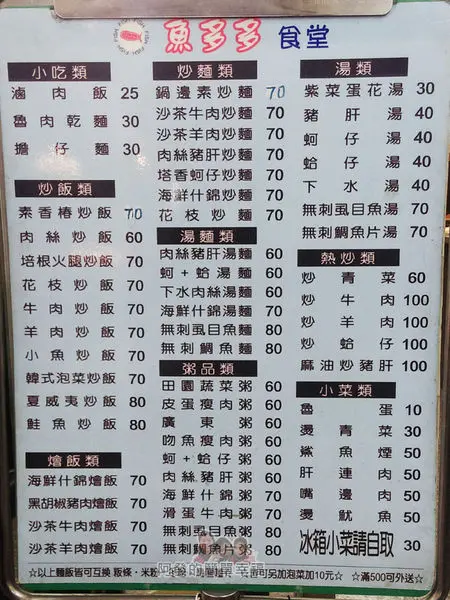 魚多多 食堂
小吃類
滷肉飯 25
魯肉乾麵 30
擔仔麵 30
炒飯類
素香椿炒飯 70
肉絲炒飯 60
培根火腿炒飯 70
花枝炒飯 70
牛肉炒飯 70
羊肉炒飯 70
小魚炒飯 70
韓式泡菜炒飯 70
夏威夷炒飯 80
鮭魚炒飯 80
燴飯類
海鮮什錦燴飯 70
黑胡椒豬肉燴飯 70
沙茶牛肉燴飯 70
沙茶羊肉燴飯 70
炒麵類
鍋邊素炒麵 70
沙茶牛肉炒麵 70
沙茶羊肉炒麵 70
肉絲豬肝炒麵 70
塔香蚵仔炒麵 70
海鮮什錦炒麵 70
花枝炒麵 70
湯麵類
肉絲豬肝湯麵 60
蚵+蛤湯麵 60
下水肉絲湯麵 60
海鮮什錦湯麵 70
無刺虱目魚麵 80
無刺鯛魚麵 80
粥品類
田園蔬菜粥 60
皮蛋瘦肉粥 60
廣東粥 60
吻魚瘦肉粥 60
蚵+蛤仔粥 60
肉絲豬肝粥 60
海鮮什錦粥 70
滑蛋牛肉粥 70
無刺虱目魚粥 80
無刺鯛魚片粥 80
湯類
紫菜蛋花湯 30
豬肝湯 40
蚵仔湯 40
蛤仔湯 40
下水湯 40
無刺虱目魚湯 70
無刺鯛魚片湯 70
熱炒類
炒青菜 60
炒牛肉 100
炒羊肉 100
炒蛤仔 100
麻油炒豬肝 100
小菜類
魯蛋 10
燙青菜 30
鯊魚煙 50
肝連肉 50
嘴邊肉 50
燙魷魚 50
冰箱小菜請自取 30
☆以上麵飯皆可互換 粄條・米粉 皆可另加泡菜加10元☆ ☆滿500可外送☆